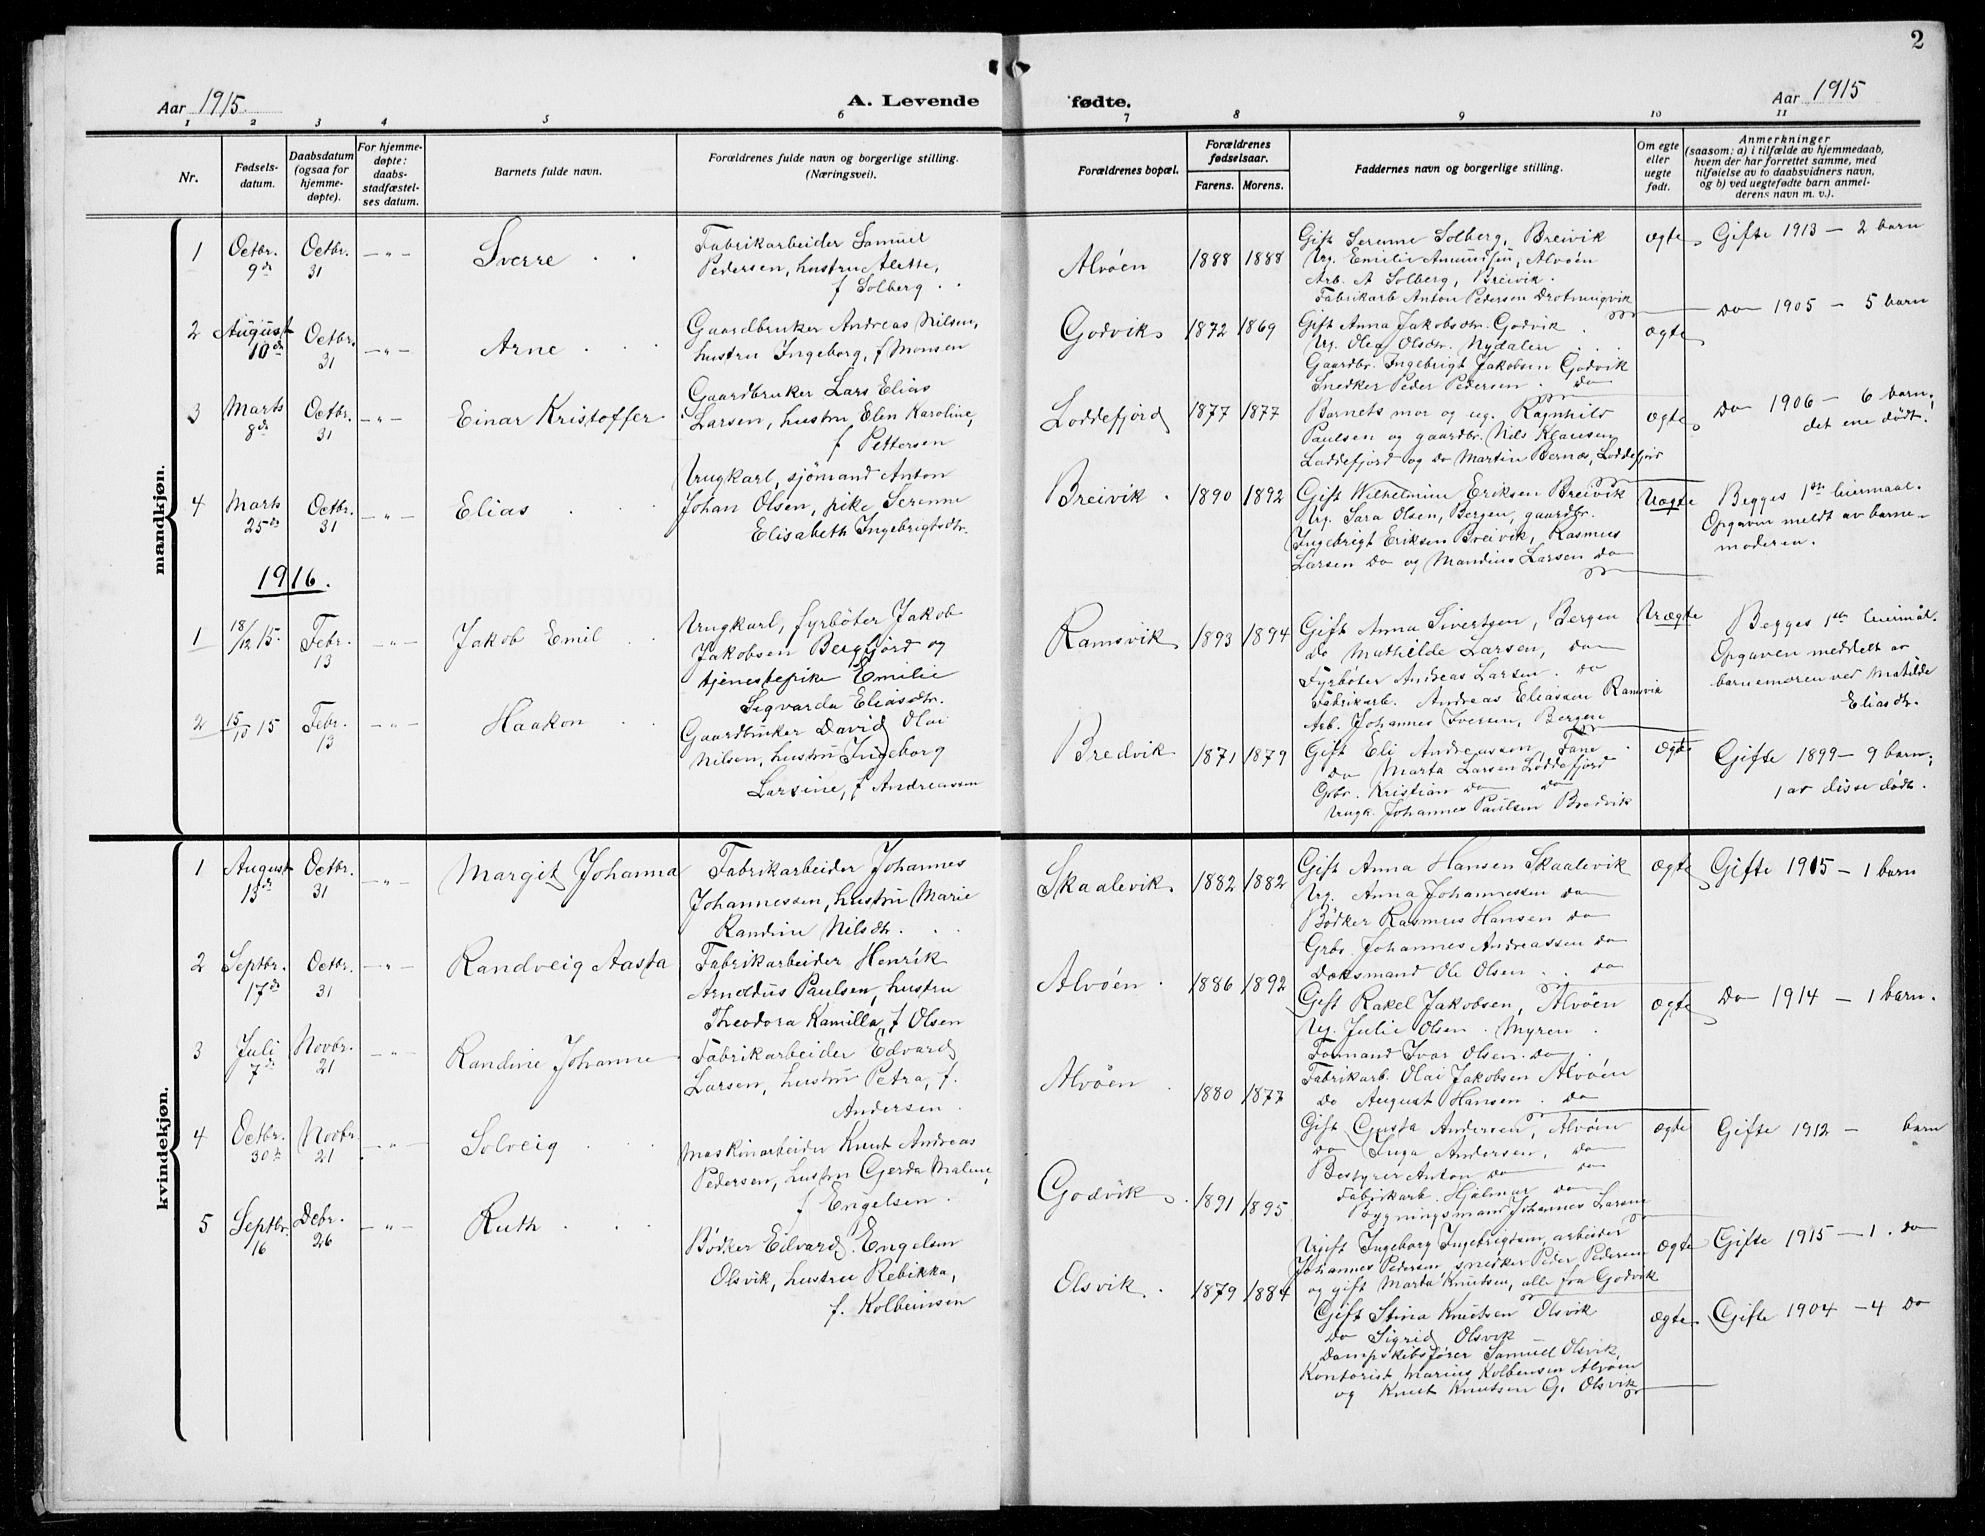 2
Aar 1915.
A. Levende
fødte.
Aar 1915
1 2 3 4 5 6
7 8 9 10 11
Nr.
Fødsels-
datum.
Daabsdatum
(ogsaa for
hjemme-
døpte).
For hjemme-
døpte:
daabs-
stadfæstel-
ses datum.
Barnets fulde navn.
Forældrenes fulde navn og borgerlige stilling.
(Næringsvei).
Forældrenes bopæl.
Forældrenes
fødselsaar.
Farens. Morens.
Faddernes navn og borgerlige stilling.
Om egte
eller
uegte
født.
Anmerkninger
(saasom: a) i tilfælde av hjemmedaab,
hvem der har forrettet samme, med
tilføielse av to daabsvidners navn,
og b) ved uegtefødte barn anmel-
derens navn m. v.).
mandkjøn.
1
Octbr.
9de
Octbr.
31
-„-
Sverre
Fabrikarbeider Samuel
Pedersen, hustru Alette,
f Solberg
Alvöen
1888 1888
Gift Serume Solberg, Breivik
Ug. Emilie Amundsen, Alvöen
Arb. A Solberg, Breivik.
Fabrikarb Anton Pedersen Drotningvik
ægte
Gifte 1913 - 2 barn
2
August
10de
Octbr.
31
-„-
Arne
Gaardbruker Andreas Nilsen,
hustru Ingeborg, f Monsen
Godvik
1872 1869
Gift Anna Jakobsdtr. Godvik
Ug. Olea Olsdtr. Nydalen
Gaardbr. Ingebrigt Jakobsen Godvik
Snedker Peder Pedersen. do
ægte
Do 1905 - 5 barn
3
Marts
8de
Octbr.
31
-„-
Einar Kristoffer
Gaardbruker Lars Elias
Larsen, hustru Elen Karoline,
f Pettersen
Loddefjord
1877 1877
Barnets mor og ug. Ragnhild
Paulsen og gaardbr. Nils Klausen
Loddefjord og do Martin Bernes, Loddefjord
ægte
Do 1906 - 6 barn,
det ene dødt.
4
Marts
25de
Octbr.
31
-„-
Elias
Ungkarl, sjömand Anton
Johan Olsen, pike Serenne
Elisabeth Ingebrigtsdtr.
Breivik
1890 1892
Gift Wilhelmine Eriksen Breivik
Ug. Sara Olsen, Bergen, gaardbr.
Ingebrigt Eriksen Breivik, Rasmus
Larsen Do og Mandius Larsen do
Uægte
Begges 1ste leiermaal.
Opgaven meldt av barne-
moderen.
1916.
1
18/12 15.
Febr.
13
-„-
Jakob Emil
Ungkarl, fyrböter Jakob
Jakobsen Bergfjord og
tjenestepike Emilie
Sigvarda Eliasdtr.
Ramsvik
1893 1894
Gift Anna Sivertsen, Bergen
do Mathilde Larsen, do
Fyrböter Andreas Larsen. do
Fabrikarb. Andreas Eliassen Ramsvik
Arb. Johannes Iversen, Bergen
Uægte
Begges 1ste leiermål.
Opgaven meddelt av
barnemoren ved Matilde
Eliasdtr.
2
15/10 15
Febr.
13
-„-
Haakon
Gaardbruker David Olai
Nilsen, hustru Ingeborg
Larsine, f Andreassen
Bredvik
1871 1879
Gift Eli Andreassen, Fane
do Marta Larsen Loddefjord
Grbr. Kristian do do
Ungk. Johannes Paulsen Bredvik
ægte
Gifte 1899 - 9 barn,
1 av disse dödt.
kvindekjøn.
1
August
13de
Octbr.
31
-„-
Margit Johanna
Fabrikarbeider Johannes
Johannessen, hustru Marie
Randine Nilsdtr.
Skaalevik
1882 1882
Gift Anna Hansen Skaalevik
Ug. Anna Johannessen do
Bödker Rasmus Hansen do
Grbr. Johannes Andreassen do
Dæksmand Ole Olsen do
ægte
Gifte 1915 - 1 barn
2
Septbr.
17de
Octbr.
31
-„-
Randveig Aasta
Fabrikarbeider Henrik
Arnoldus Paulsen, hustru
Theodora Kamilla, f Olsen
Alvöen
1886 1892
Gift Rakel Jakobsen, Alvöen
Ug. Julie Olsen. Myren.
Formand Ivar Olsen. do
Fabrikarb. Olai Jakobsen Alvöen
Do August Hansen. do
ægte
Do 1914 - 1 barn.
3
Juli
7de
Novbr.
21
-„-
Randine Johanne
Fabrikarbeider Edvard
Larsen, hustru Petra, f.
Andersen.
Alvöen
1880 1877
Gift Gusta Andersen, Alvöen
do Inga Andersen, do
Bestyrer Anton do do
Fabrikarb. Hjalmar do
Bygningsmand Johannes Larsen
ægte
Gifte 1912 - barn
4
Octbr.
30te
Novbr.
21
-„-
Solveig
Maskinarbeider Knut Andreas
Pedersen, hustru Gerda Malene,
f Engelsen
Godvik
1891 1895
Ugift Ingeborg Ingebrigtsen, arbeider
Johannes Pedersen, snedker Peder Pedersen
og gift Marta Knutsen, alle fra Godvik
ægte
Gifte 1915 - 1. do
5
Septbr.
16
Debr.
26
-„-
Ruth
Bödker Edvard Engelsen
Olsvik, hustru Rebikka,
f. Kolbeinsen
Olsvik
1879 1884
Gift Stina Knutsen Olsvik
Do Sigrid Olsvik
Dampskibsförer Samuel Olsvik,
Kontorist Marius Kolbensen Alvöen
og Knut Knutsen G. Olsvik
ægte
Gifte 1904 - 4 Do